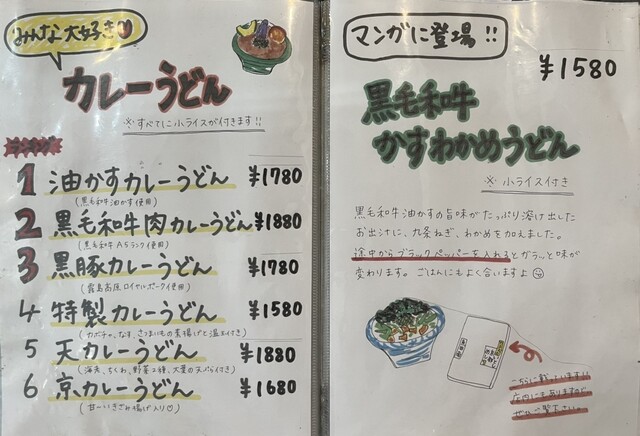 みんな大好き
カレーうどん
※すべてに小ライスが付きます!!
ランキング
1 油かすカレーうどん ¥1780
(黒毛和牛油かす使用)
2 黒毛和牛肉カレーうどん ¥1880
(黒毛和牛A5ランク使用)
3 黒豚カレーうどん ¥1780
(霧島高原ロイヤルポーク使用)
4 特製カレーうどん ¥1580
(カボチャ、なす、さつまいもの素揚げと温玉付き)
5 天カレーうどん ¥1880
(海老、ちくわ、野菜2種、大葉の天ぷら付き)
6 京カレーうどん ¥1680
(甘〜いきざみ揚げ入り♡)
マンガに登場!!
¥1580
黒毛和牛
かすわかめうどん
※小ライス付き
黒毛和牛油かすの旨味がたっぷり溶け出した
お出汁に、九条ねぎ、わかめを加えました。
途中からブラックペッパーを入れるとガラッと味が
変わります。ごはんにもよく合いますよ
こちらに載っています!!
店内にもありますが
ぜひご覧下さい。